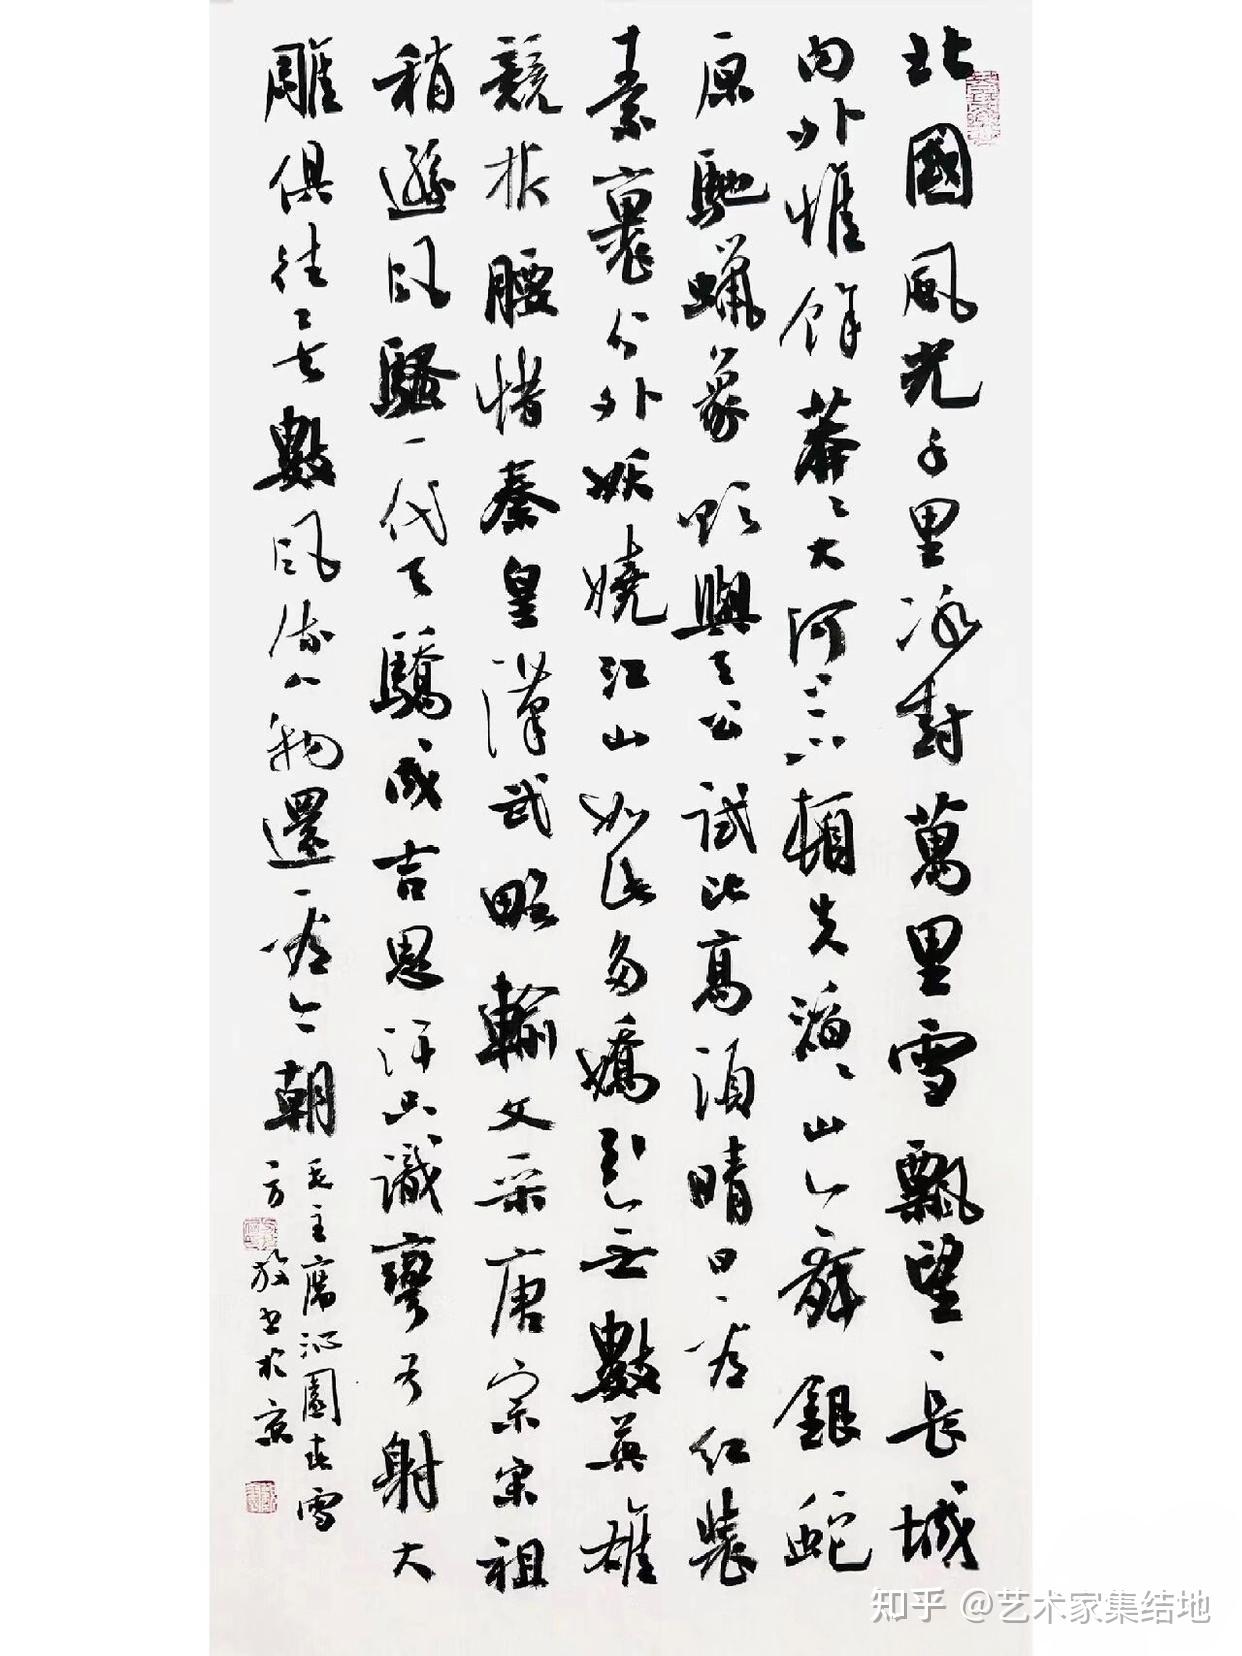 北國風光千里冰封萬里雪飄望長城
内外惟餘莽〻大河上下頓失滔〻山舞銀蛇
原馳蠟象欲與天公試比高須晴日看红裝
素裹分外妖嬈江山如此多嬌引无數英雄
競折腰惜秦皇漢武略輸文采唐宗宋祖
稍遜風騷一代天驕成吉思汗只識彎弓射大
雕俱往矣數風流人物還看今朝
毛主席沁園春雪
方放书於京
知乎 @艺术家集结地